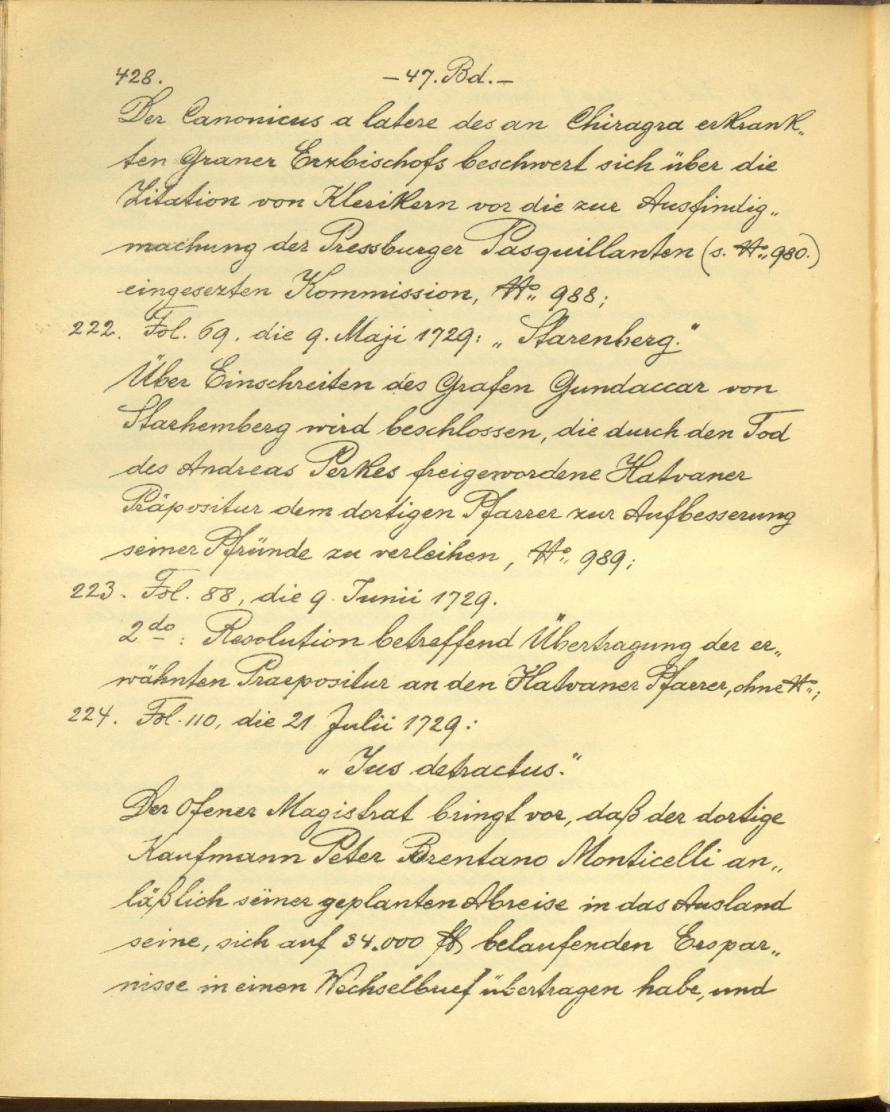 428. – 47. Bd. –
Der Canonicus a latere des an Chiragra erkrank„
ten Graner Erzbischofs beschwert sich über die
Zitation von Klerikern vor die zur Ausfindig„
machung der Pressburger Pasquillanten (s. No„ 980.)
eingesezten Kommission, No„ 988;
222. Fol. 69, die 9. Maji 1729: „Starenberg.“
Über Einschreiten des Grafen Gundaccar von
Starhemberg wird beschlossen, die durch den Tod
des Andreas Perkes freigewordene Hatvaner
Präpositur dem dortigen Pfarrer zur Aufbesserung
seiner Pfründe zu verleihen, No„ 989;
223. Fol. 88, die 9. Junii 1729.
2do: Resolution betreffend Übertragung der er„
wähnten Praepositur an den Hatvaner Pfarrer, ohne No„;
224. Fol. 110, die 21 Julii 1729:
„Jus detractus.“
Der Ofener Magistrat bringt vor, daß der dortige
Kaufmann Peter Brentano Monticelli an„
läßlich seiner geplanten Abreise in das Ausland
seine, sich auf 34.000 fl belaufenden Erspar„
nisse in einen Wechselbrief übertragen habe, und